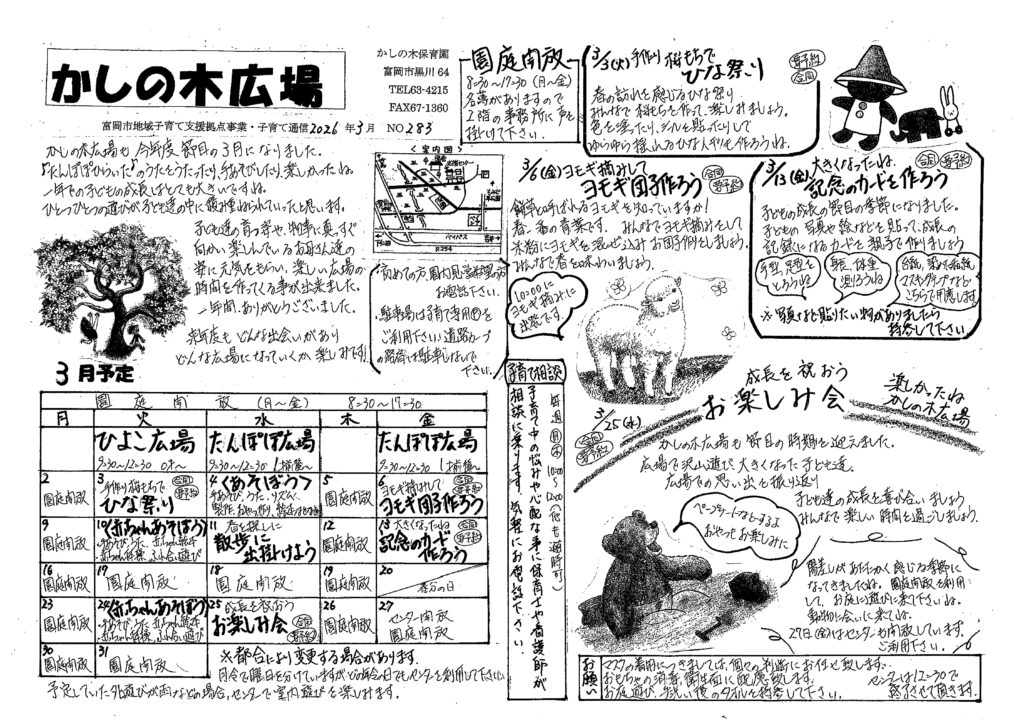 かしの木広場
かしの木保育園
富岡市黒川 64
TEL63-4215
FAX67-1360
富岡市地域子育て支援拠点事業・子育て通信2026 年3月 NO283
かしの木広場も今年度、節目の3月になりました。
一年での子どもの成長はとても大きいですね。
ひとつひとつの遊びが子ども達の中に積み重ねられていったと思います。
子ども達の育つ姿や、物事に真っすぐ
向かい楽しんでいるお母さん達の
姿に元気をもらい、楽しい広場の
時間を作ってくる事が出来ました。
一年間、ありがとうございました。
来年度もどんな出会いがあり
どんな広場になっていくか、楽しみです!
園庭開放
8:30~17:30 (月~金)
名簿がありますので
1階の事務所に声を
掛けて下さい。
<案内図>
バイパス
R254
お電話下さい。
ご利用下さい。道路カーブ
下さい。
3/3(火)手作り桜もちで
ひな祭り
要予約
合同
春の訪れを感じるひな祭り。
みんなで桜もちを作って、楽しみましょう。
色を塗ったり、シールを貼ったりして
ゆらゆら揺れるひな人形も作ろうね。
3/6(金)ヨモギ摘みして
ヨモギ団子作ろう
合同
要予約
春一番の青菜です。みんなでヨモギ摘みして
本格にヨモギを混ぜ込みお団子作りをしましょう。
みんなで春を味わいましょう。
10:00に
ヨモギ摘みに
出発です。
3/13(金)大きくなったね
記念のカードを作ろう
合同
要予約
子どもの成長の節目の季節になりました。
子どもの写真や絵などを貼って、成長の
記録になるカードを親子で作りましょう
手型、足型を
とろうね
身長、体重
測ろうね
こちらで用意します
※写真など貼りたい物がありましたら
持参して下さい
子育て相談
毎週月~木 10:00~12:00(他も随時可)
子育て中の悩みや心配な事に保育士や看護師が
相談に乗ります。気軽にお電話下さい。
3/25(水)
合同
要予約
成長を祝おう
お楽しみ会
楽しかったね
かしの木広場
かしの木広場も節目の時期を迎えました。
広場で沢山遊び大きくなった子ども達。
広場での思い出を振り返り
子ども達の成長を喜び合いましょう
みんなで楽しい時間を過ごしましょう。
ペープサートなどするよ
おやつもお楽しみに
陽差しがあたたかく感じる季節に
なってきましたね。園庭開放を利用
して、お庭に遊びに来て下さいね。
動物に会いに来てね。
27日(金)はセンターも開放しています。
ご利用下さい。
3月予定
園庭開放 (月~金) 8:30~17:30
月 火 水 木 金
ひよこ広場 たんぽぽ広場 たんぽぽ広場
9:30~12:30 0才~ 9:30~12:30 1才後~ 9:30~12:30 1才後~
2 園庭開放
3 手作り桜もちで ひな祭り 合同 要予約
4 くあそぼう>
5 園庭開放
6 ヨモギ摘みして ヨモギ団子作ろう 合同 要予約
9 園庭開放
10 (赤ちゃんあそぼう)
11 春を探しに 散歩に出掛けよう
12 園庭開放
13 大きくなったね 記念のカード作ろう 合同 要予約
16 園庭開放
17 園庭開放
18 園庭開放
19 園庭開放
20 春分の日
23 園庭開放
24 (赤ちゃんあそぼう)
25 成長を祝おう お楽しみ会 合同 要予約
26 園庭開放
27 センター開放 園庭開放
30 園庭開放
31 園庭開放
※都合により変更する場合があります。
月令で曜日を分けていますがどの年令の日でもセンターを利用して下さい
予定していた外遊びが雨などの場合、センターで室内遊びを楽しみます。
お願い
マスクの着用につきましては、個々の判断にお任せ致します。
おもちゃの消毒、衛生面に配慮致します。
お庭遊び、手洗い後のタオルを持参して下さい。
センターは12:30で
終了させて頂きます。